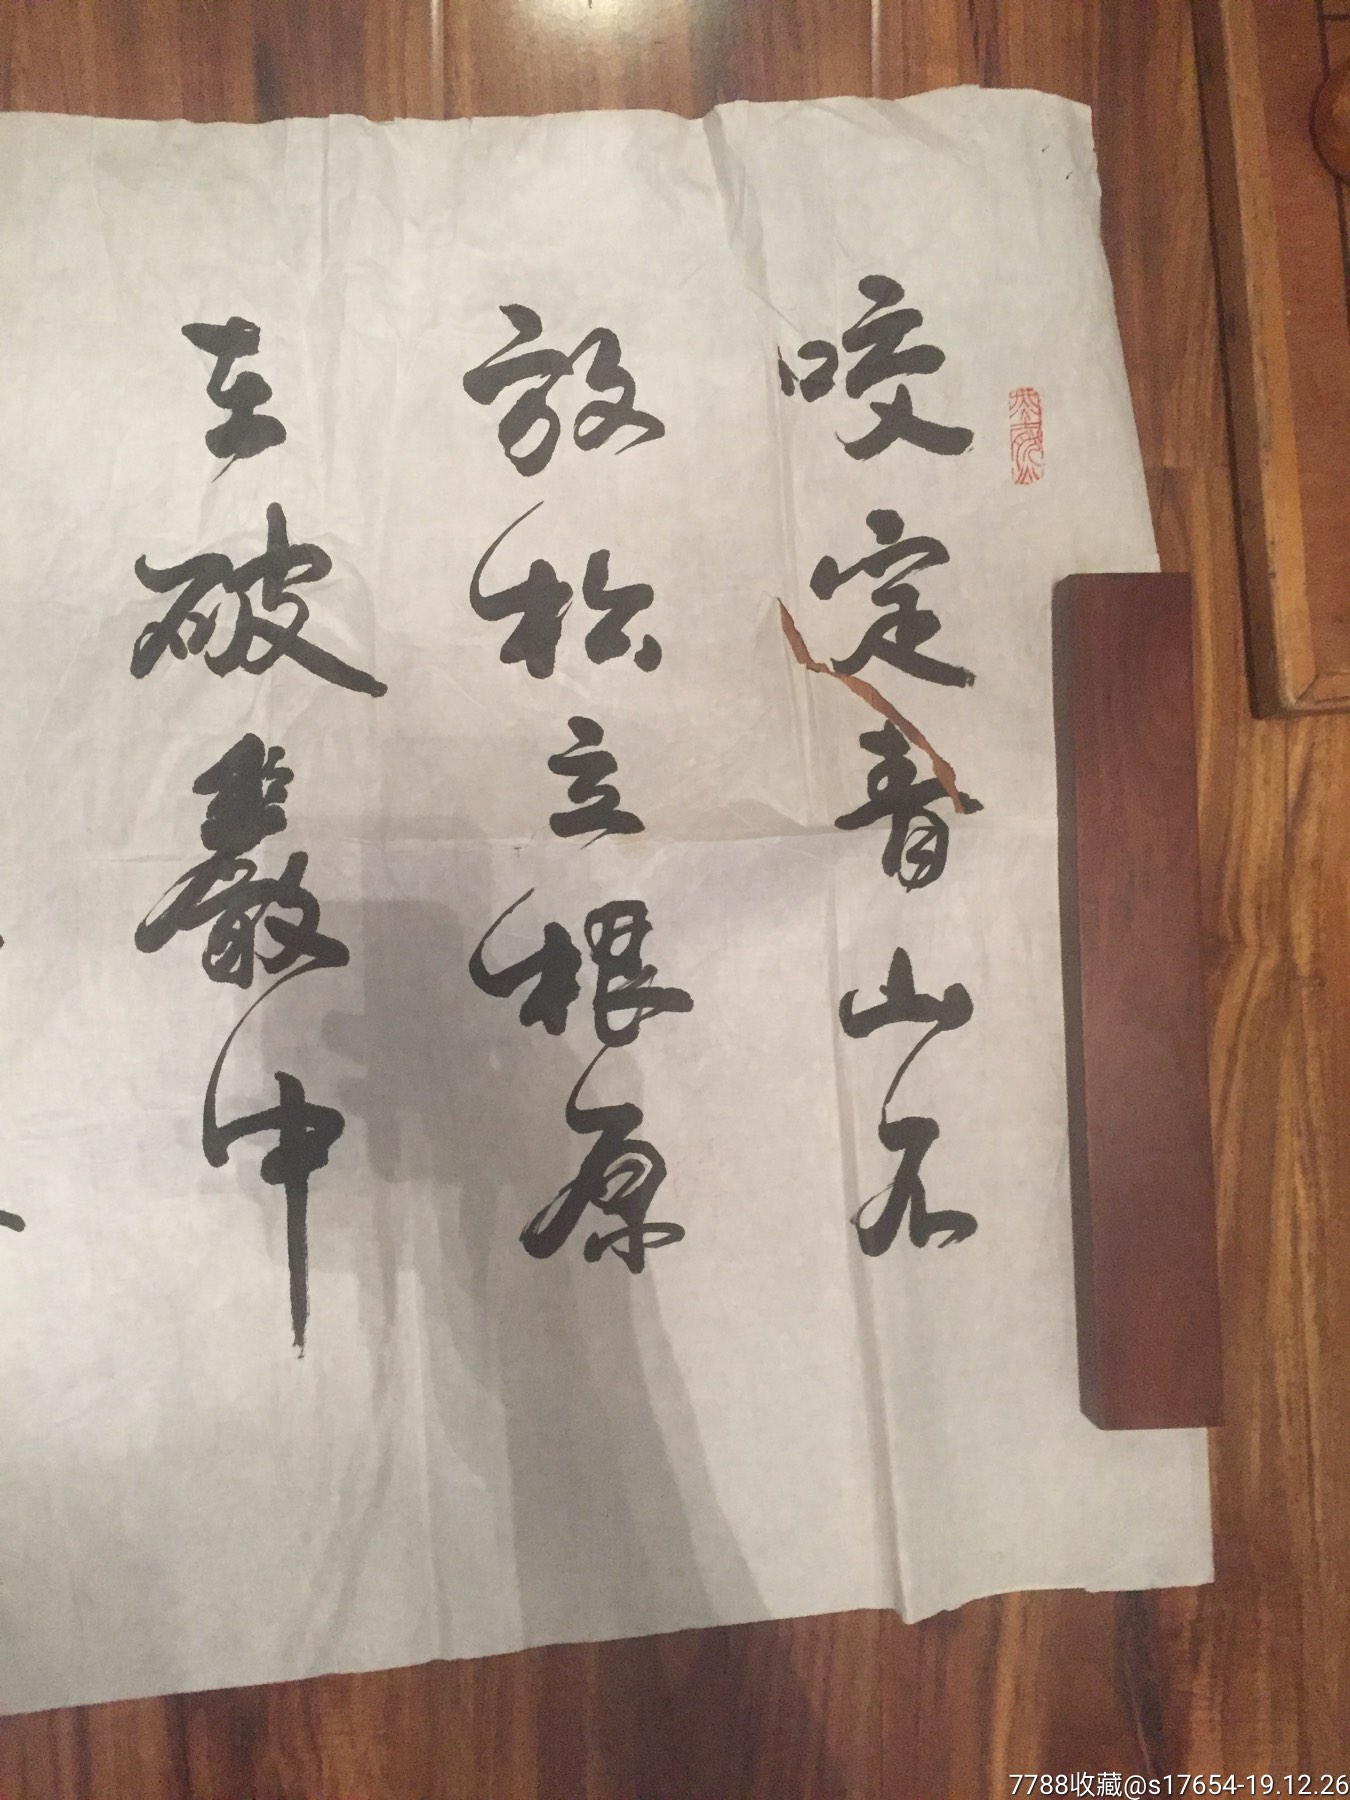 咬定青山不
放松立根原
在破巖中
7788收藏@s17654-19.12.26